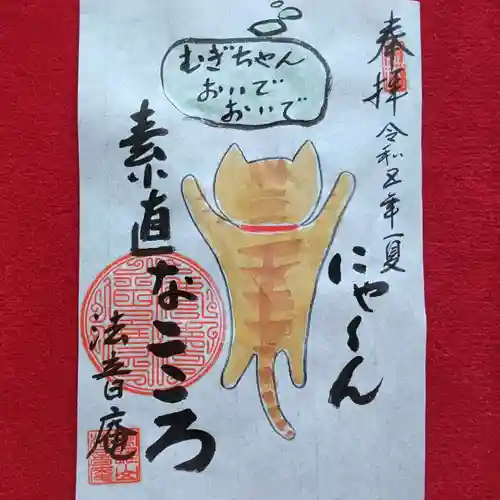 奉拝
令和五年夏
むぎちゃん
おいで
おいで
にゃくん
素直なこころ
法音庵